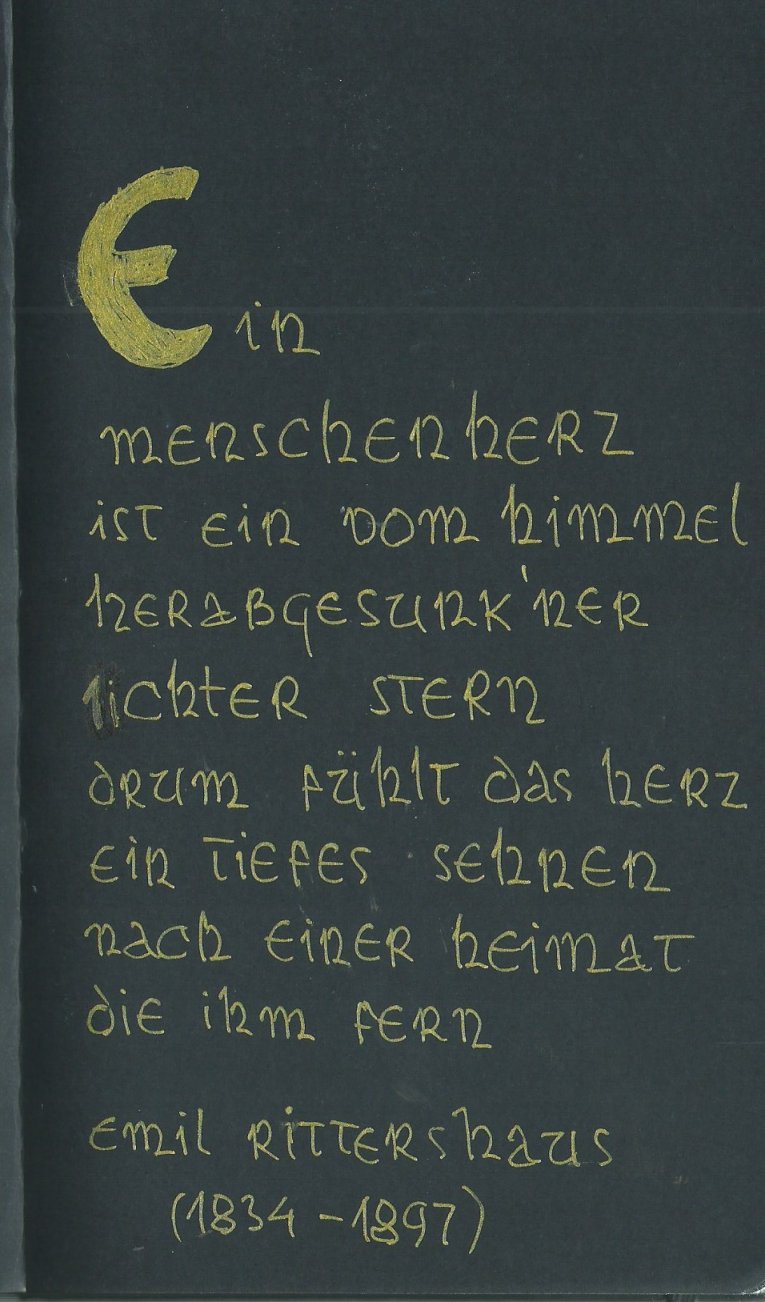 Ein
menschenherz
ist ein vom himmel
herabgesunk'ner
lichter stern
drum fühlt das herz
ein tiefes sehnen
nach einer heimat
die ihm fern
emil rittershaus
(1834 - 1897)